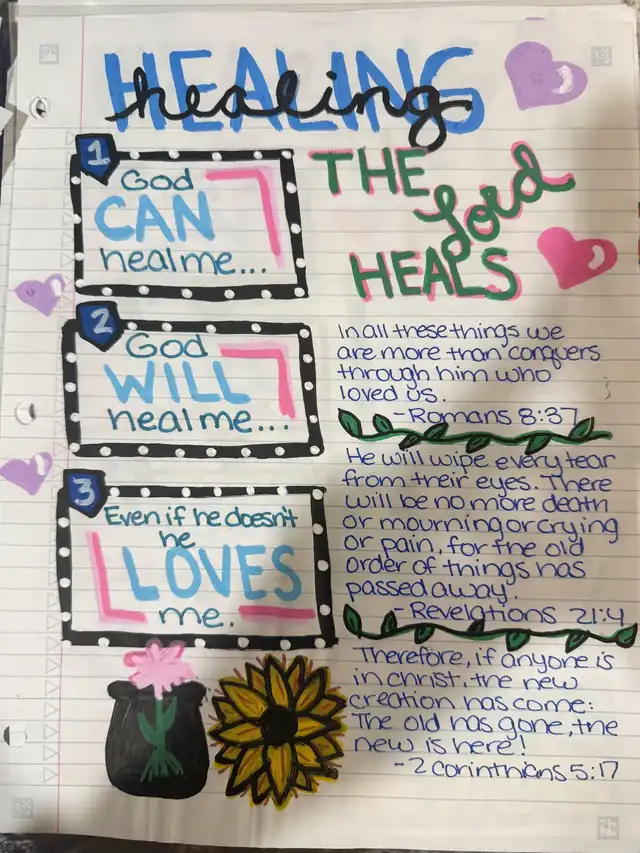 HEALING
healing
1
God
CAN
heal me...
2
God
WILL
heal me...
3
Even if he doesn't
he
LOVES
me.
THE
Lord
HEALS
In all these things we
are more than conquers
through him who
loved us.
- Romans 8:37
He will wipe every tear
from their eyes. There
will be no more death
or mourning or crying
or pain, for the old
order of things has
passed away.
- Revelations 21:4
Therefore, if anyone is
in christ, the new
creation has come:
The old has gone, the
new is here!
- 2 corinthians 5:17